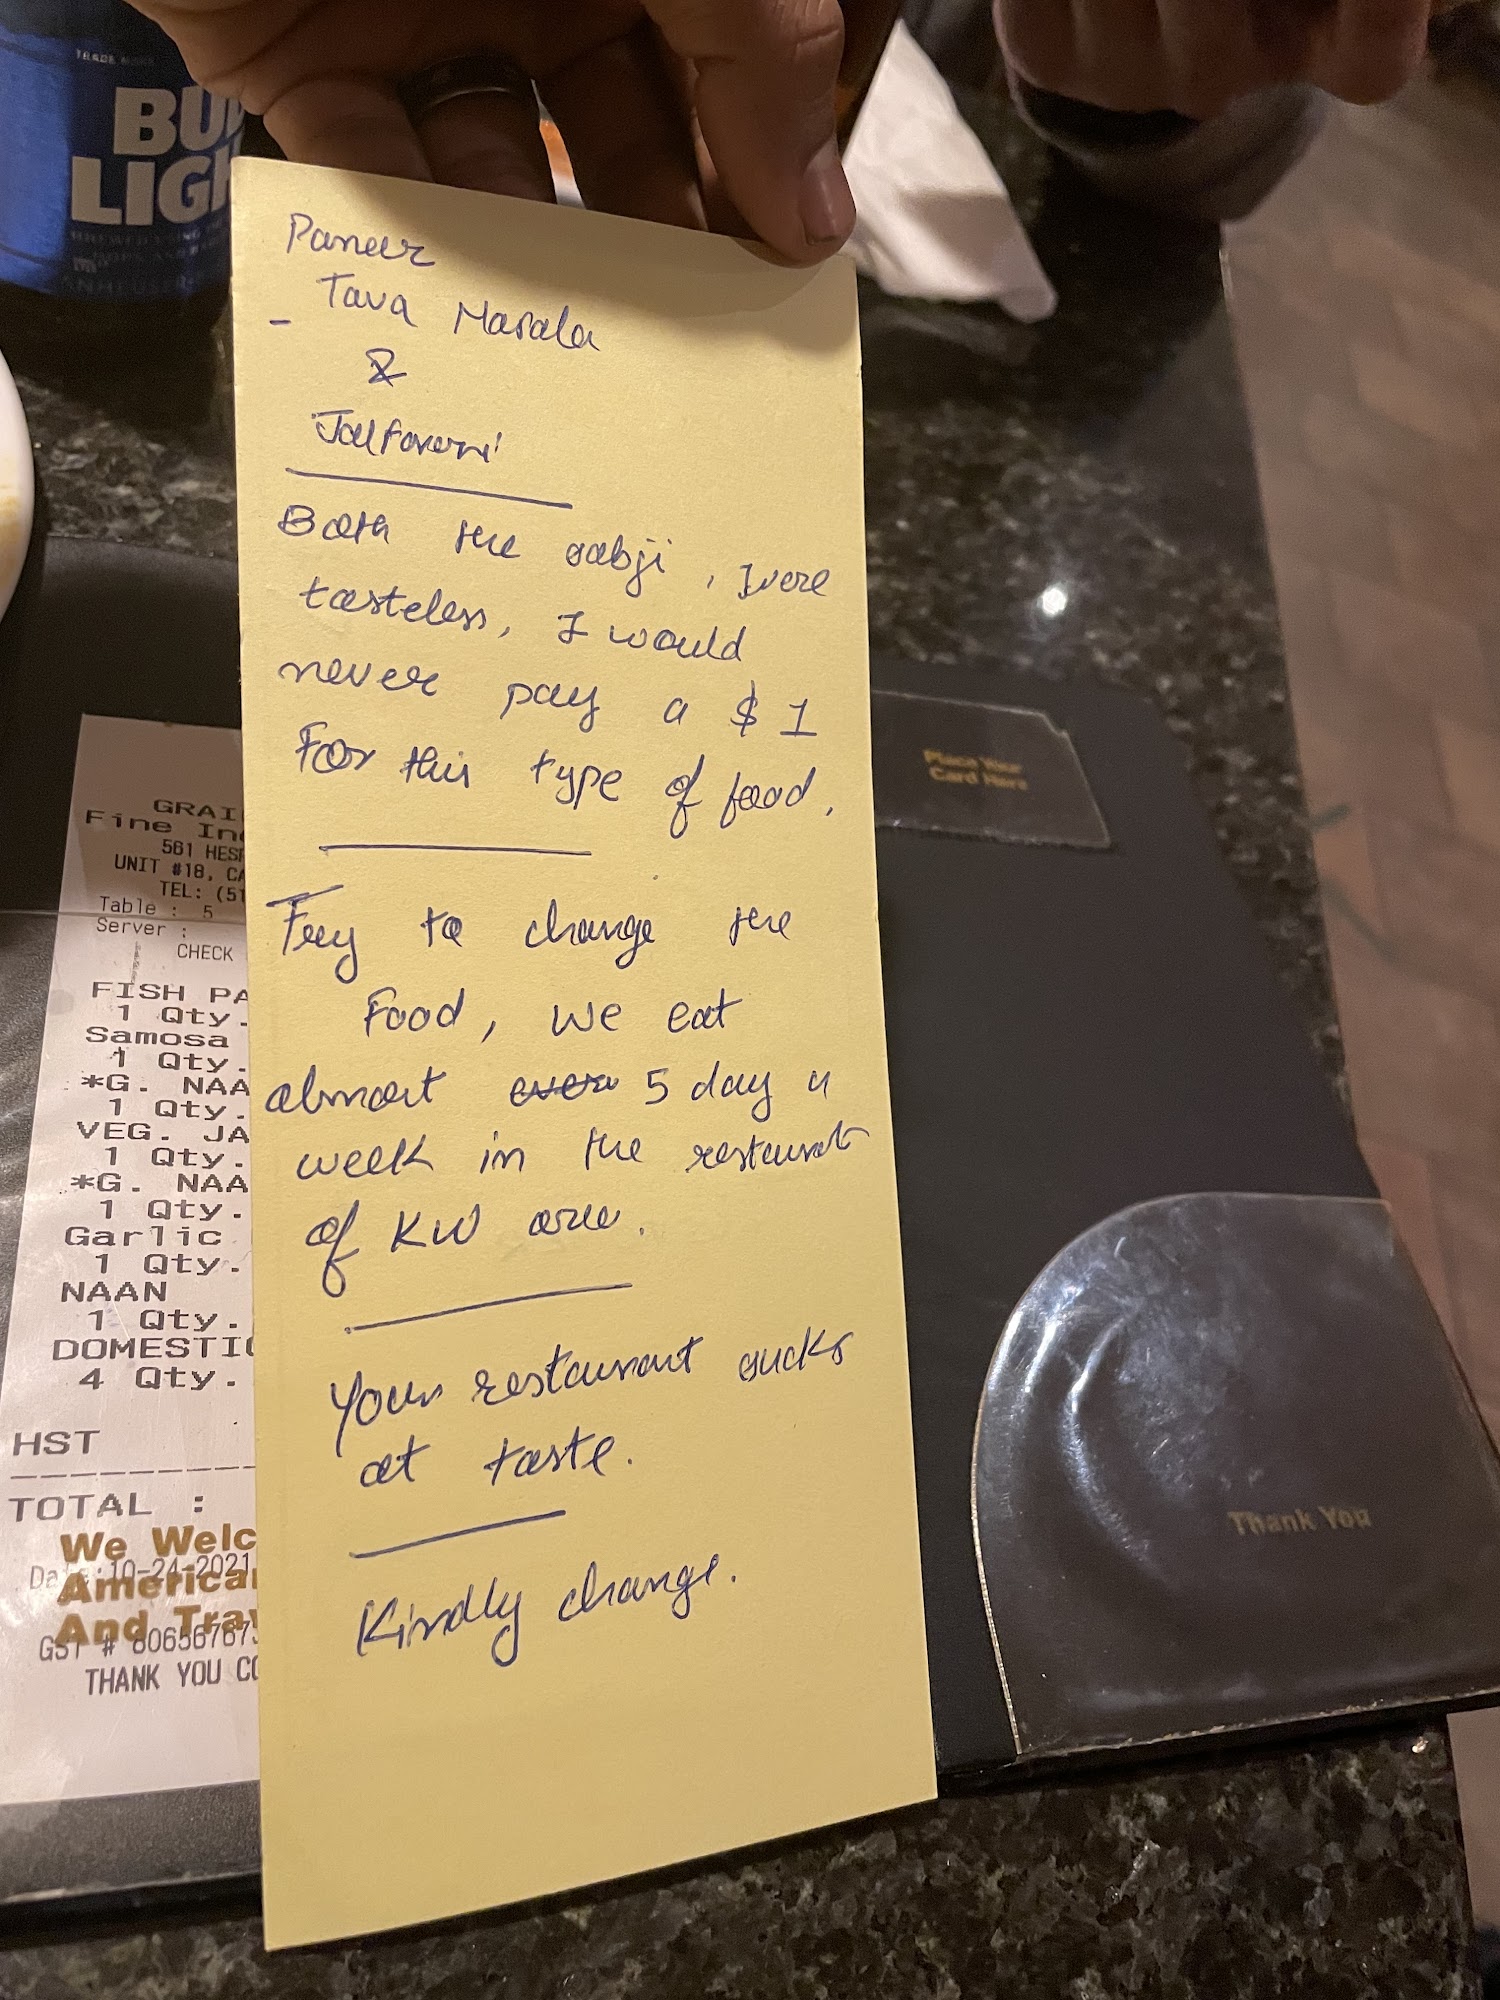 TRADE MARK
BUD
LIGH
Paneer
- Tava Masala
&
Jalfarezi
Both the sabji, were
tasteless, I would
never pay a $1
For this type of food.
Try to change the
Food, we eat
almost 5 day a
week in the restaurant
of KW area.
Your restaurant sucks
at taste.
Kindly change.
GRAI
Fine In
561 HESP
UNIT #18, CA
TEL: (51
Table : 5
Server :
CHECK
FISH PA
1 Qty.
Samosa
1 Qty.
*G. NAA
1 Qty.
VEG. JA
1 Qty.
*G. NAA
1 Qty.
Garlic
1 Qty.
NAAN
1 Qty.
DOMESTIC
4 Qty.
HST
TOTAL :
We Welc
Date:10-24-2021
American
And Trav
GST # 80656767
THANK YOU CO
Place Your
Card Here
Thank You